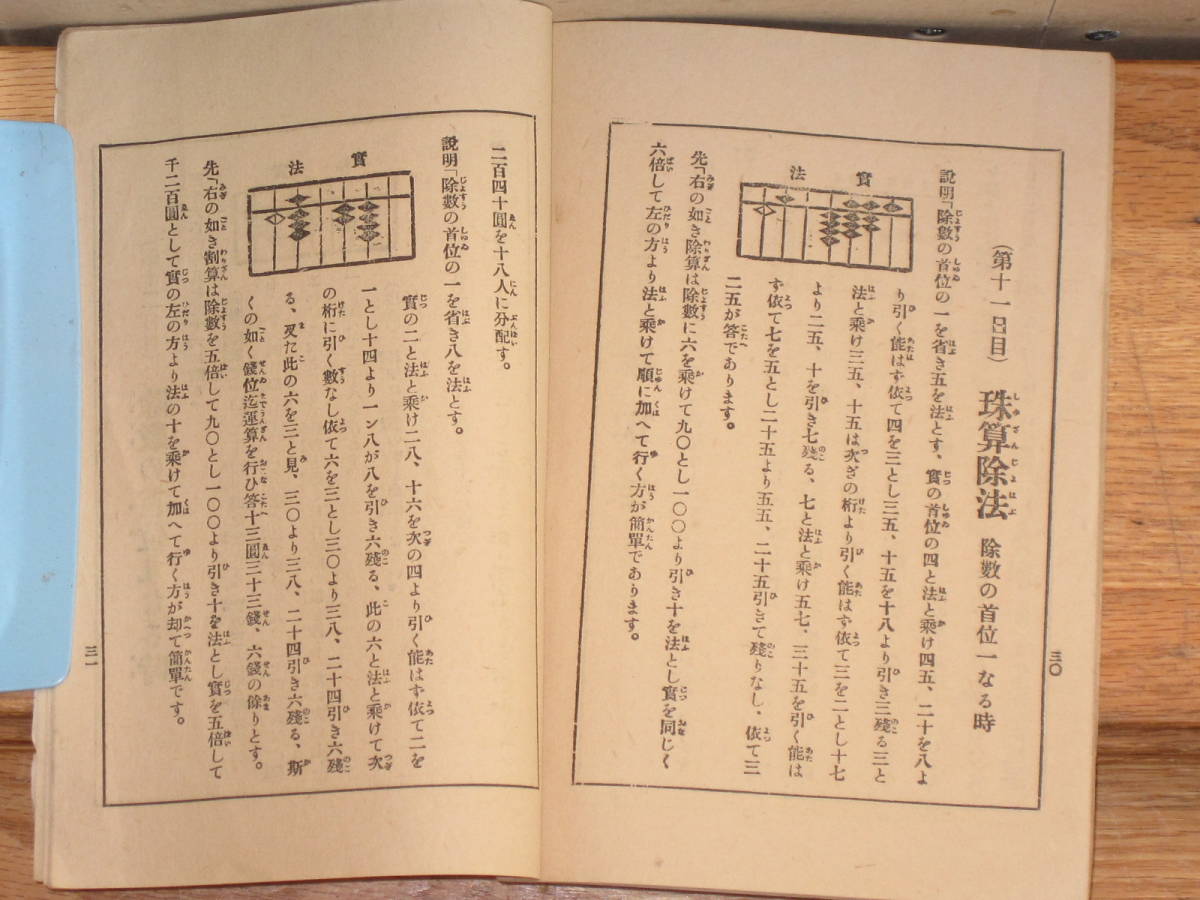 三〇
(第十一日目) 珠算除法 除數の首位一なる時
說明「除數の首位の一を省き五を法とす、實の首位の四と法と乘け四五、二十を八よ
り引く能はず依て四を三とし三五、十五を十八より引き三殘る三と
法と乘け三五、十五は次ぎの桁より引く能はず依て三を二とし十七
より二五、十を引き七殘る、七と法と乘け五七、三十五を引く能は
ず依て七を五とし二十五より五五、二十五引きて殘りなし、依て三
二五が答であります。
實
法
先「右の如き除算は除數に六を乘けて九〇とし一〇〇より引き十を法とし實を同じく
六倍して左の方より法と乘けて順に加へて行く方が簡單であります。
二百四十圓を十八人に分配す。
說明「除數の首位の一を省き八を法とす。
實の二と法と乘け二八、十六を次の四より引く能はず依て二を
一とし十四より一ン八が八を引き六殘る、此の六と法と乘けて次
の桁に引く數なし依て六を三とし三〇より三八、二十四引き六殘
る、又た此の六を三と見、三〇より三八、二十四引き六殘る、斯
くの如く錢位迄運算を行ひ答十三圓三十三錢、六錢の餘りとす。
實
法
先「右の如き割算は除數を五倍して九〇とし一〇〇より引き十を法とし實を五倍して
千二百圓として實の左の方より法の十を乘けて加へて行く方が却て簡單です。
三一